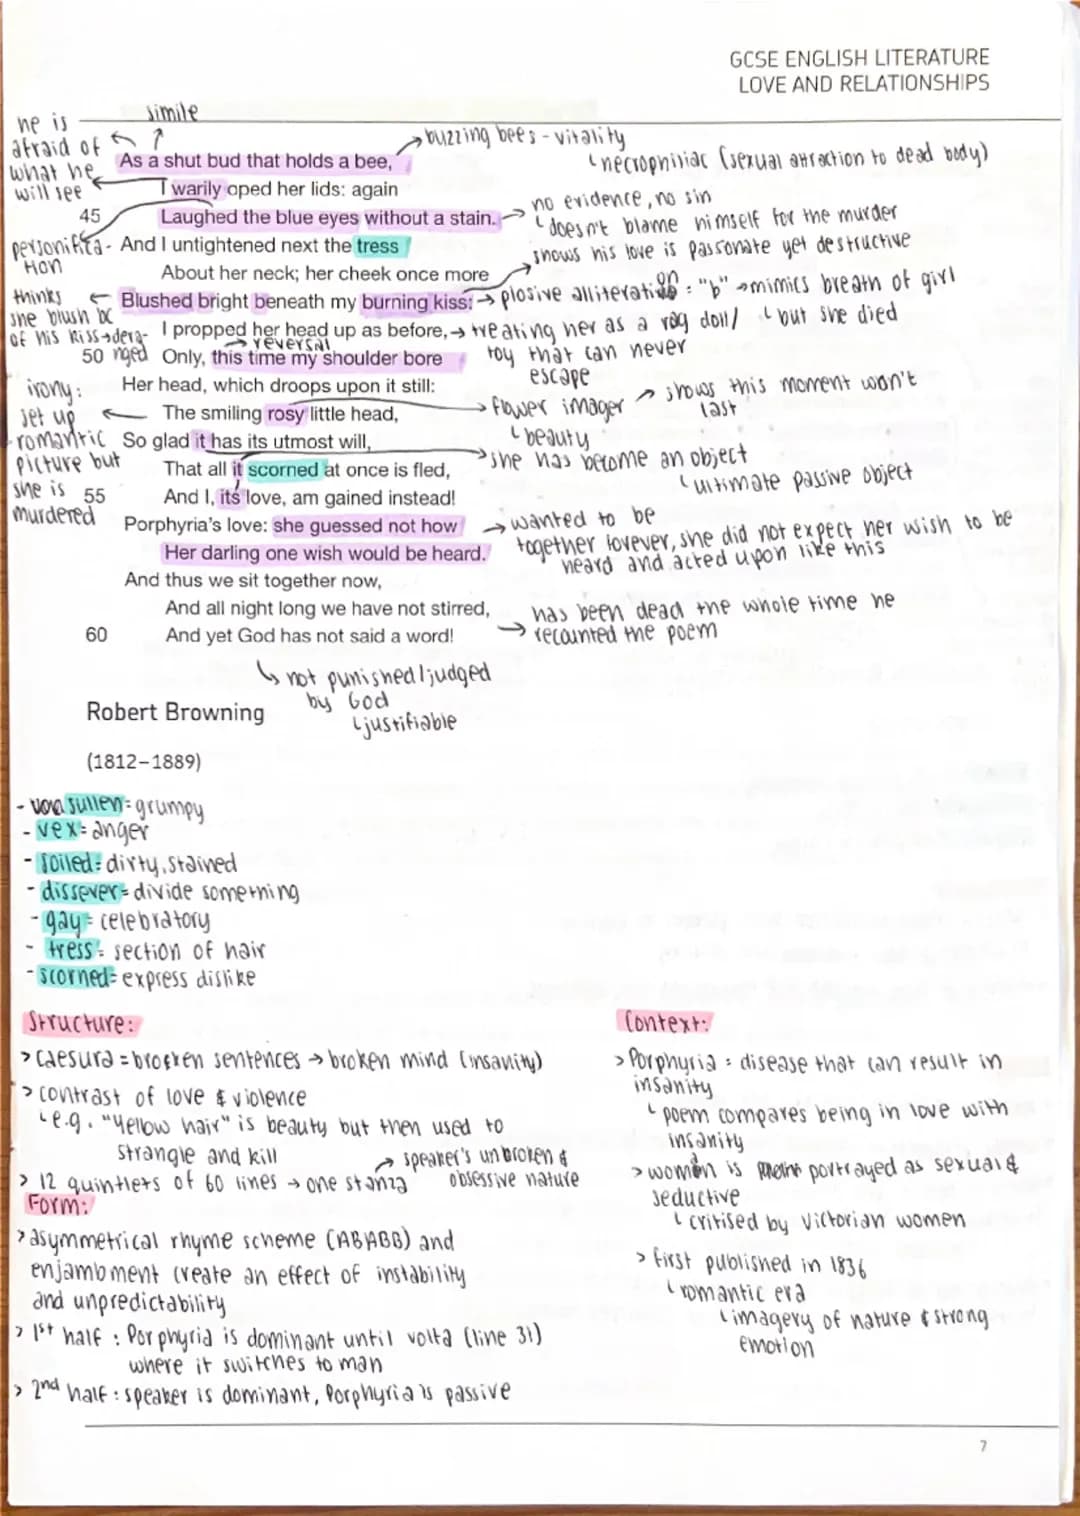 GCSE ENGLISH LITERATURE
LOVE AND RELATIONSHIPS
simile
he is
afraid of
what he
will see
buzzing bees - vitality
necrophiliac (sexual attraction to dead body)
As a shut bud that holds a bee,
I warily oped her lids: again
45 Laughed the blue eyes without a stain.
no evidence, no sin
doesn't blame himself for the murder
shows his love is passonate yet destructive
personifica-
tion
And I untightened next the tress
About her neck; her cheek once more
Blushed bright beneath my burning kiss:
plosive alliteration : "b" → mimics breath of girl
but she died
thinks
she blush bc
of his kiss → dera-
nged
I propped her head up as before,
treating her as a rag doll/
toy that can never
escape
reversal
50 Only, this time my shoulder bore
Her head, which droops upon it still:
The smiling rosy little head,
flower imager → shows this moment won't
last
beauty
irony:
set up
romantic
picture but
she is
murdered
So glad it has its utmost will,
she has become an object
ultimate passive object
That all it scorned at once is fled,
55 And I, its love, am gained instead!
Porphyria's love: she guessed not how
Her darling one wish would be heard.
wanted to be
together forever, she did not expect her wish to be
heard and acted upon like this
And thus we sit together now,
And all night long we have not stirred,
60 And yet God has not said a word!
has been dead the whole time he
recounted the poem
not punished/judged
by God
justifiable
Robert Browning
(1812–1889)
- sullen = grumpy
- vex = anger
- soiled = dirty, stained
- dissever = divide something
- gay = celebratory
- tress = section of hair
- scorned = express dislike
Structure:
> caesura = broken sentences → broken mind (insanity)
> contrast of love & violence
e.g. "Yellow hair" is beauty but then used to
strangle and kill
> 12 quintlets of 60 lines → one stanza
speaker's unbroken &
obsessive nature
Form:
> asymmetrical rhyme scheme (ABABB) and
enjambment create an effect of instability
and unpredictability
> 1st half : Porphyria is dominant until volta (line 31)
where it switches to man
> 2nd half : speaker is dominant, Porphyria is passive
Context:
> Porphyria = disease that can result in
insanity
poem compares being in love with
insanity
> women is portrayed as sexual &
seductive
critised by Victorian women
> first published in 1836
romantic era
imagery of nature & strong
emotion
7